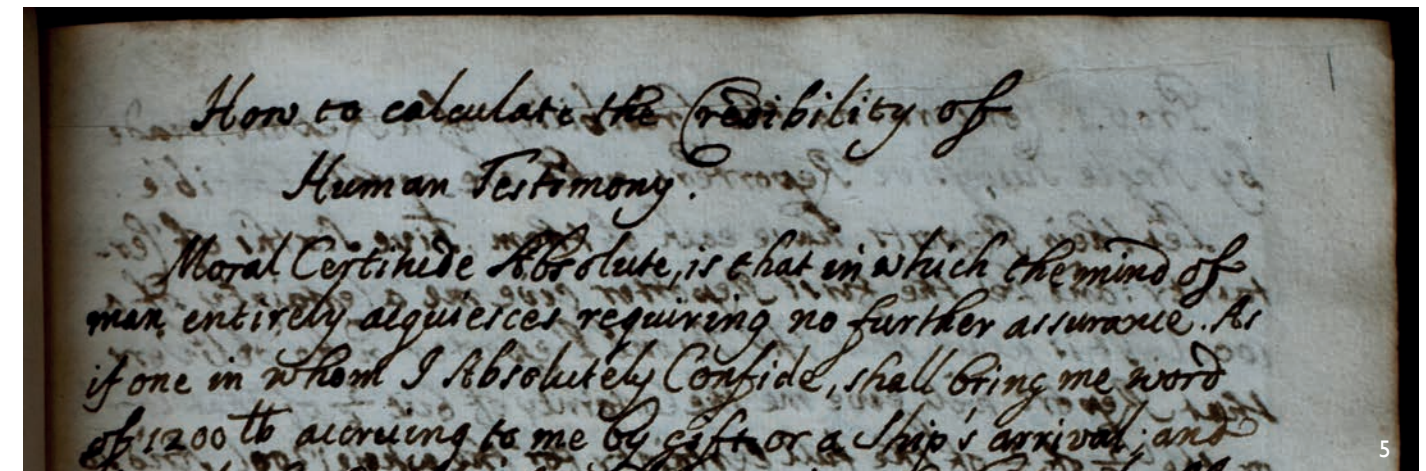 How to calculate the Credibility of
Human Testimony.
Moral Certitude Absolute, is that in which the mind of
man entirely acquiesces requiring no further assurance. As
if one in whom I Absolutely Confide, shall bring me word
of 1200 lb accruing to me by gift or a Ship's arrival; and
5